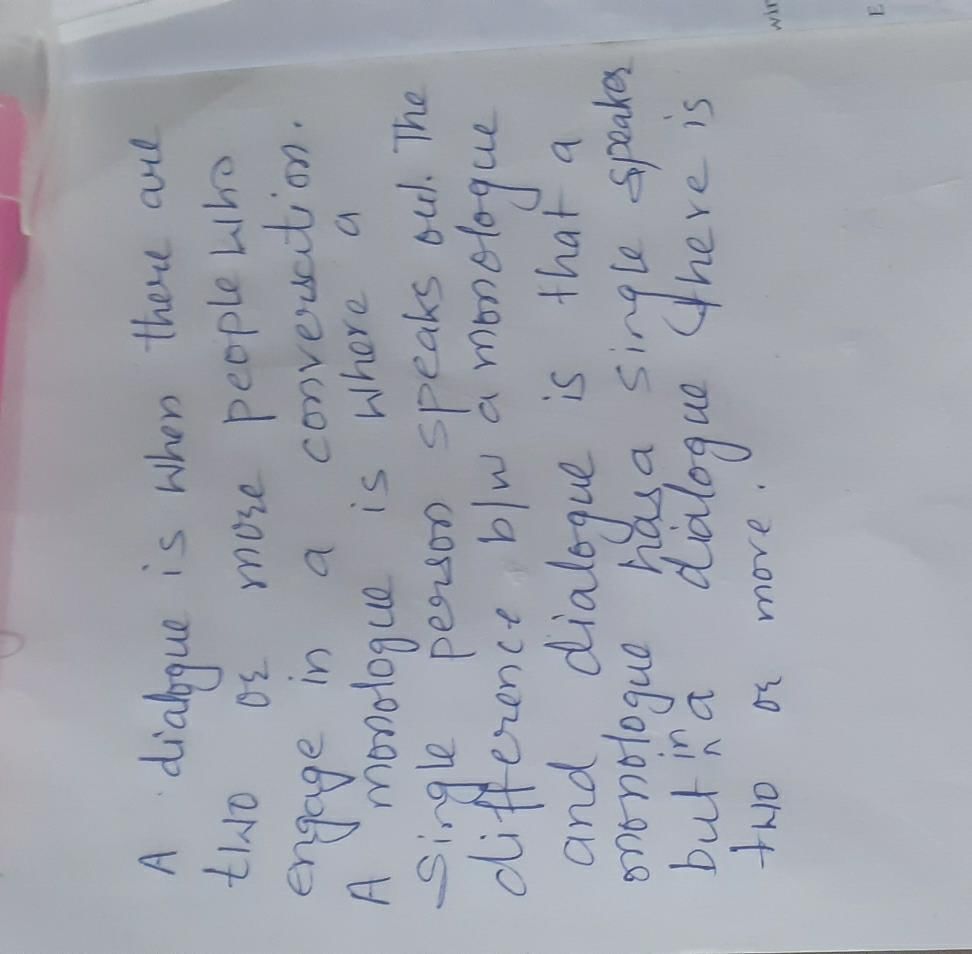 A dialogue is when there are
two or more people who
engage in a conversation.
A monologue is where a
single person speaks out. The
difference b/w a monologue
and dialogue is that a
monologue has a single speaker
but in a dialogue (there is
two or more.